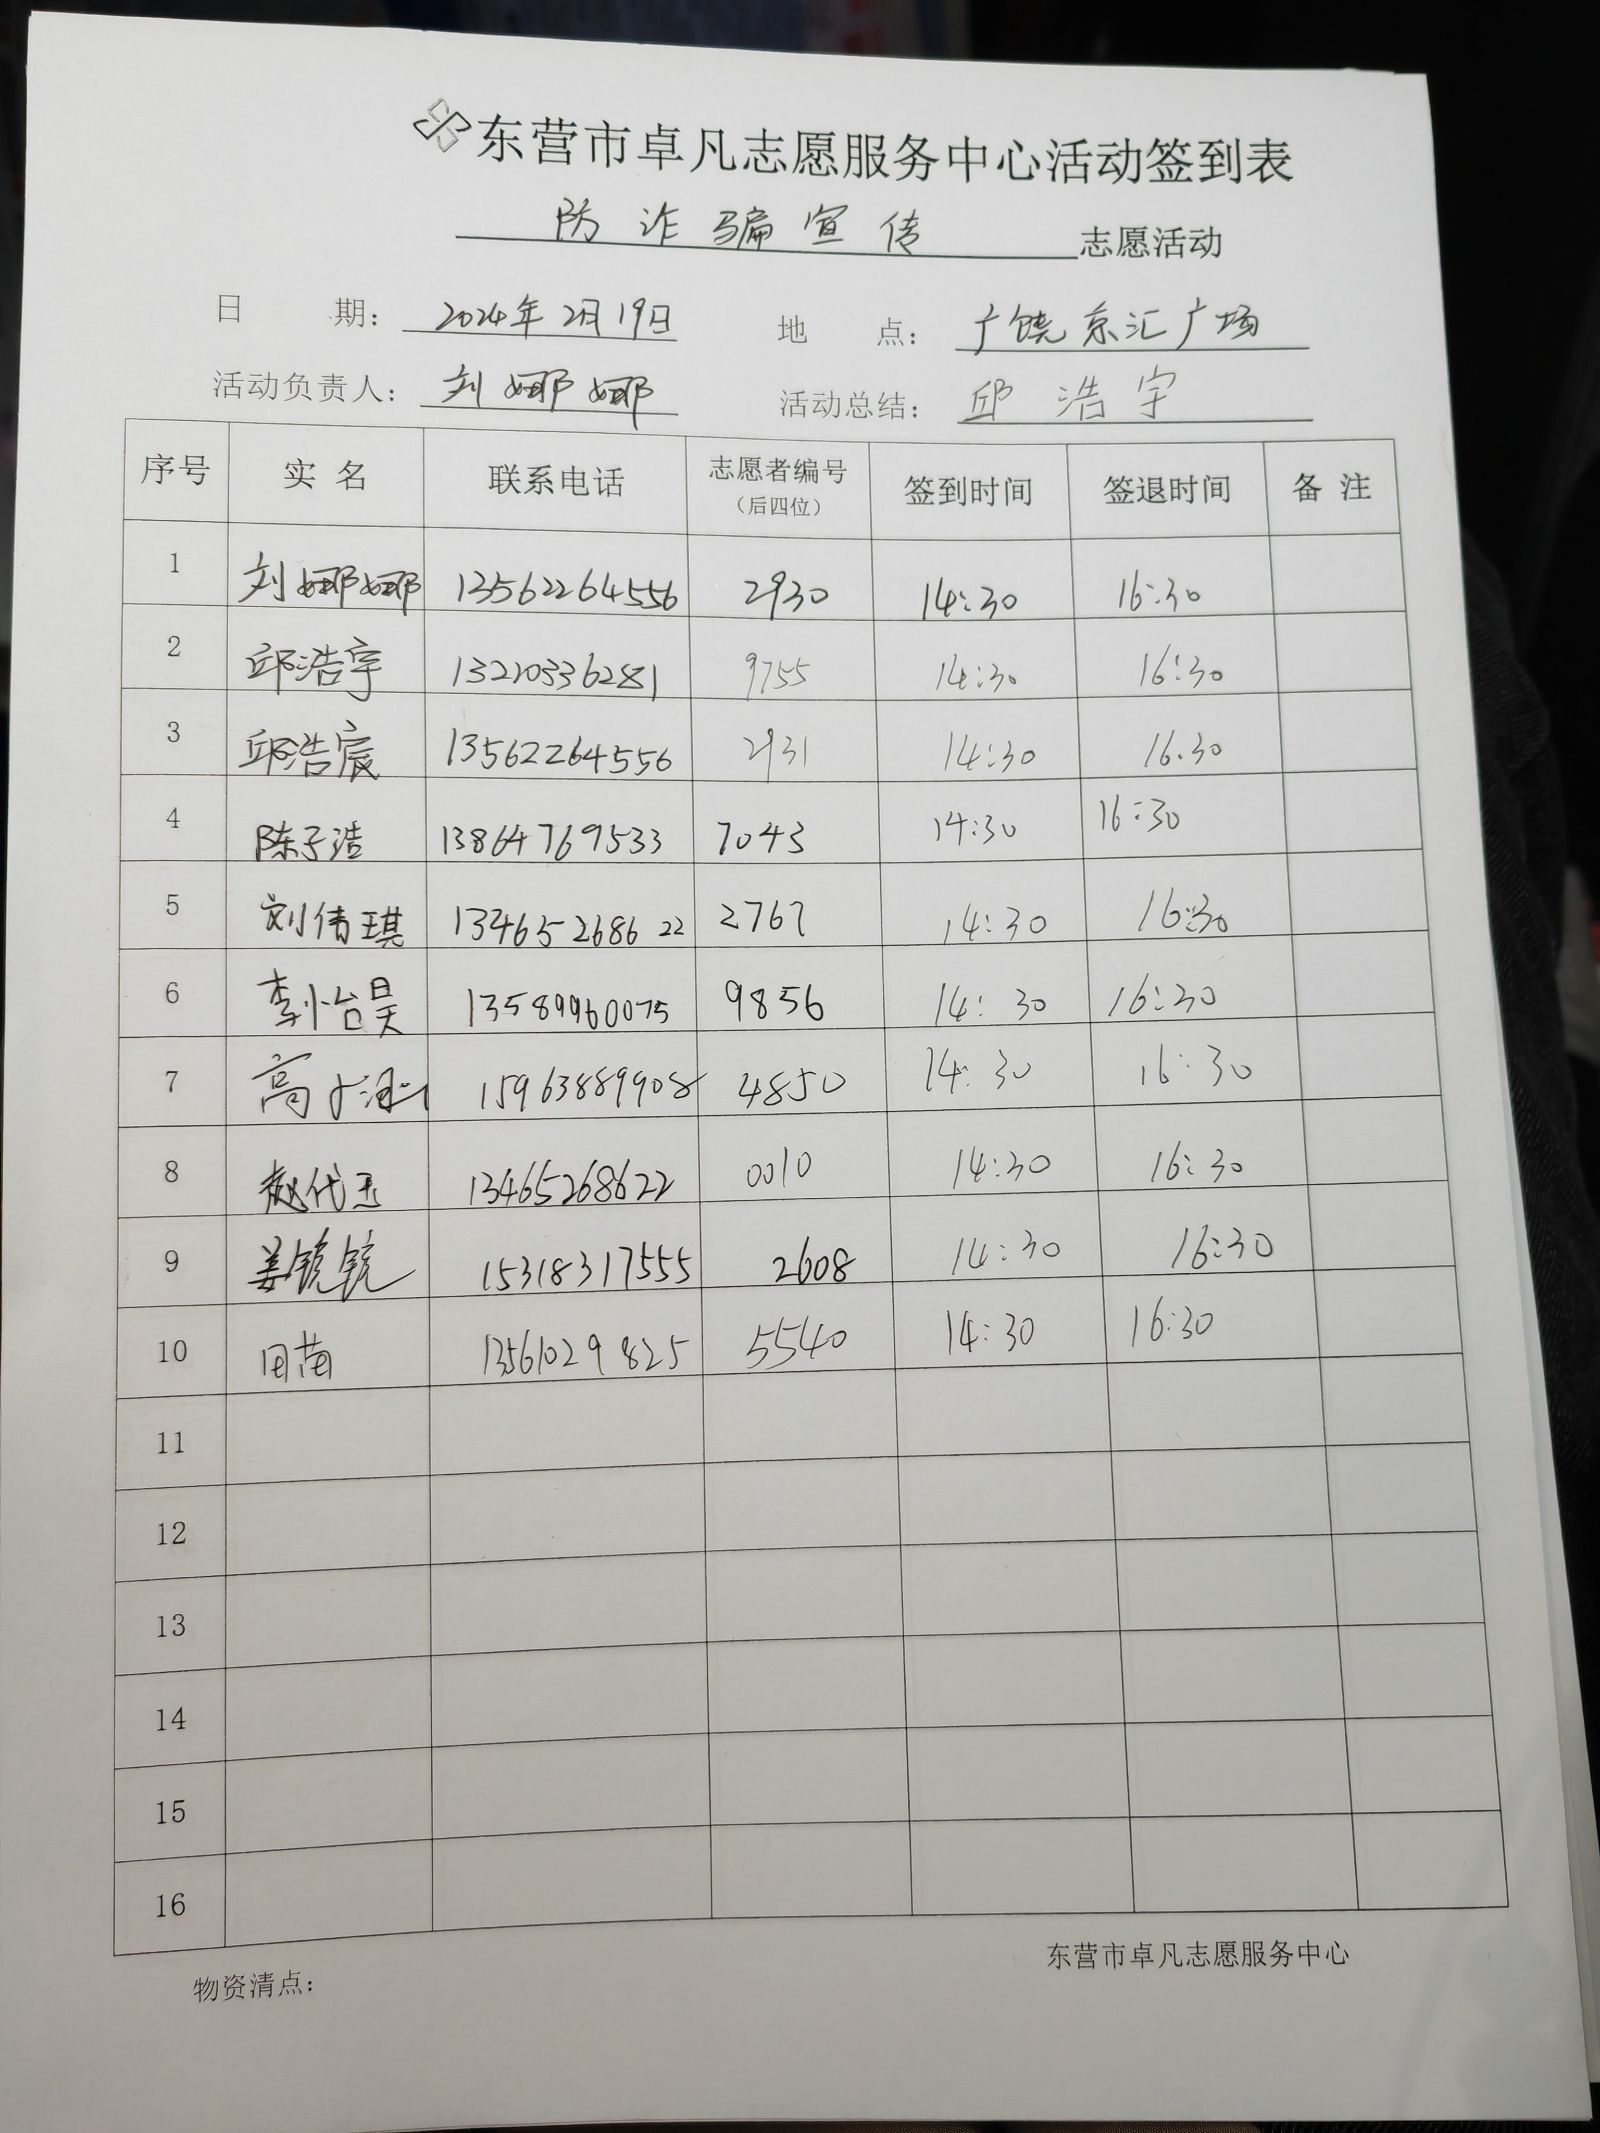 东营市卓凡志愿服务中心活动签到表
防诈骗宣传 志愿活动
日 期: 2024年2月19日 地 点: 广饶京汇广场
活动负责人: 刘娜娜 活动总结: 邱浩宇
序号 实名 联系电话 志愿者编号(后四位) 签到时间 签退时间 备注
1 刘娜娜 13562264556 2930 14:30 16:30
2 邱浩宇 13220336281 9755 14:30 16:30
3 邱浩宸 13562264556 2931 14:30 16.30
4 陈子浩 13864769533 7043 14:30 16:30
5 刘倩琪 13465268622 2767 14:30 16:30
6 李怡昊 13589960075 9856 14:30 16:30
7 高 15963889908 4850 14:30 16:30
8 赵代玉 13465268622 0010 14:30 16:30
9 姜锐锐 15318317555 2608 14:30 16:30
10 田苗 13561029825 5540 14:30 16:30
11
12
13
14
15
16
物资清点: 东营市卓凡志愿服务中心